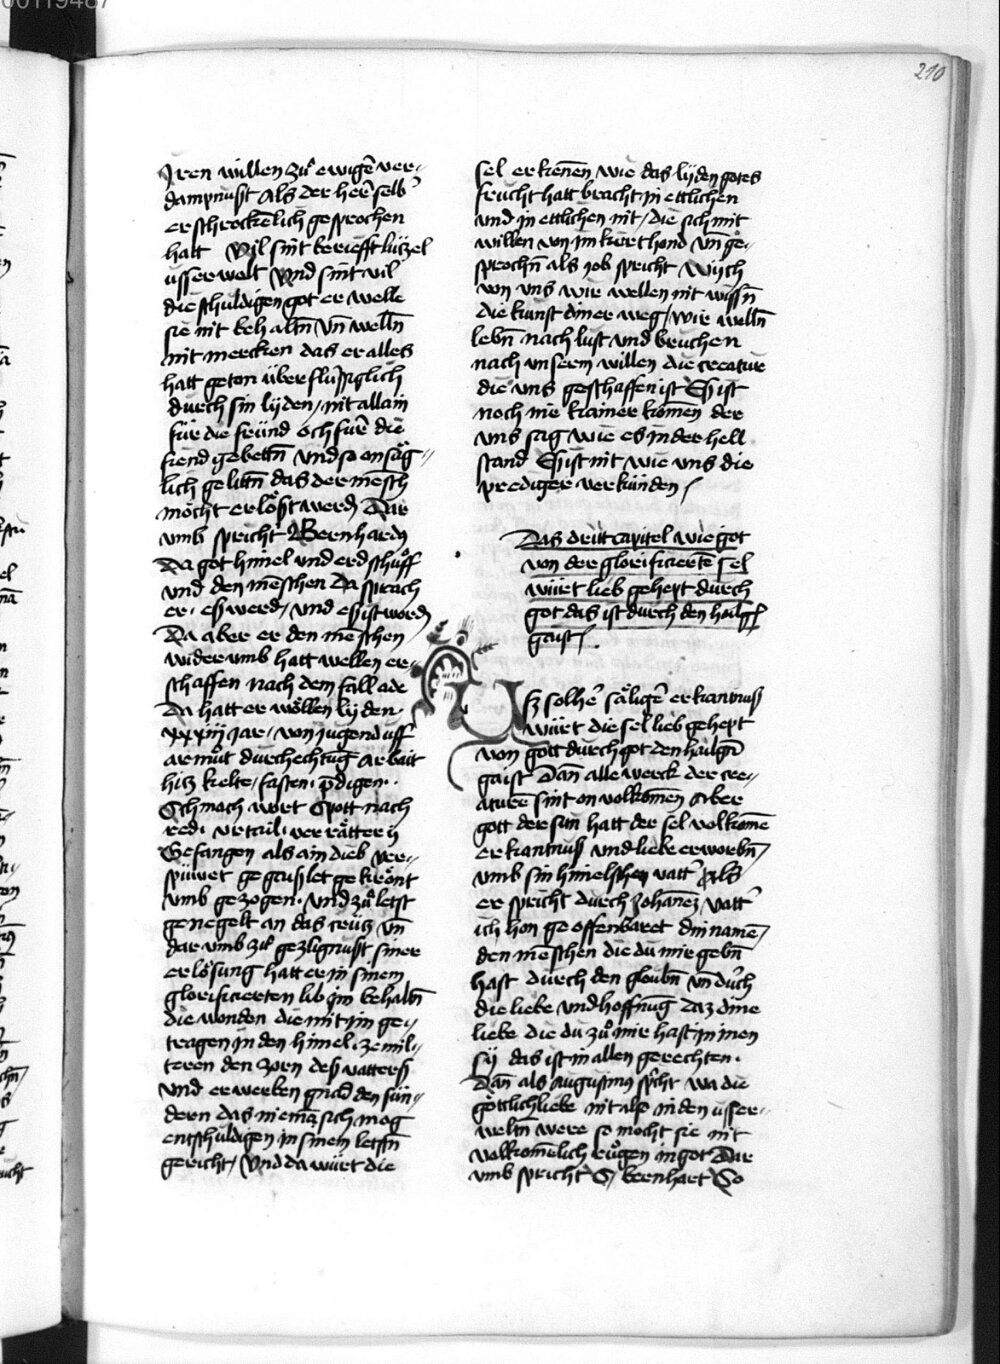 00119487
210
Iren willen zuͦ ewigē ver-
dampnußt Als der herē selb
erschrockelich gesprochen
hatt Vil sint berüefft lützel
usserwelt Vnd sint vil
die schuldigen got er welle
sie nit behaltn̄ vn̄ welln̄
nit mercken das er alles
hatt geton überflüssiglich
durch sin lyden / nit allain
für die fründ och fürē die
fiend gebettn̄ vnd so onsäg-
lich gelittn̄ das der mēsch
möcht erlößt werdn̄ Dar
vmb spricht Bernhardꝰ
Da got himel und erd schuͦff
vnd den mēschen Da sprach
er · es werd / vnd es ist wordn̄
Da aber er den mēschen
widervmb hatt wellen er-
schaffen nach dem fall ade
Da hatt er wöllen lyden ·
xxxiij Jar · von jugend uff
armuͦt durchechtūg Arbait
hitz kelte / fasten · p̄digen ·
Schmach wort Spott nach
red · vrtail · verrätterij
Gefangen als ain dieb ver-
spüwet gegaißlet gekrönt
vmb gezogen · vnd zuͦ letst
genegelt an das crütz vn̄
dar vmb zuͦ gezügnußt siner
erlösung hatt er in sinem
glorificierten lib jm behaltn̄
die wonden die mit im ge-
tragen in den himel · ze mil-
teren den zorn deß vatterß
vnd erwerben gnad den sün-
dern das niemāt sich mog
entschuldigen in sinem letstn̄
gericht / Vnd da würt die
sel erkēnen wie das lyden gotes
frucht hatt bracht in ettlichen
vnd in ettlichen nit / die sich mit
willen von im kiert hond vn̄ ge-
sprochn̄ als Job spricht Wych
von vns wir wellen nit wissn̄
die kunst diner weg / wir welln̄
lebn̄ nach lust vnd bruchen
nach vnserm willen die creatur
die vns geschaffen ist Es ist
noch nie kainer komen der
vns sag wie es in der hell
stand Es ist nit wie vns die
prediger verkünden /
Das dritt capitel wie got
von der glorificierte sel
würt lieb gehept durch
got das ist durch den hailgn̄
gaist / .
Vß solhe säliger erkantnuß
würt die sel lieb gehept
von gott durch got den hailgn̄
gaist Dān alle werck der cre-
aturē sint onvolkomen Aber
gott der sun hatt der sel volkomē
erkantnuß vnd liebe erworbn̄
vmb sin himelschen vatt Als
er spricht durch Johanez vatt
ich hon geoffenbaret din namē
den mēschen die du mir gebn̄
hast durch den gloubn̄ vn̄ durch
die liebe vnd hoffnūg Daz dine
liebe die du zuͦ mir hast in inen
sy das ist in allen gerechten ·
Dān als Augustinꝰ sp̄cht wa die
göttlich liebe nit als in den usser-
weltn̄ were so mocht sie nit
volkomēlich ruͦgen in got Dar
vmb spricht S / bernhart So